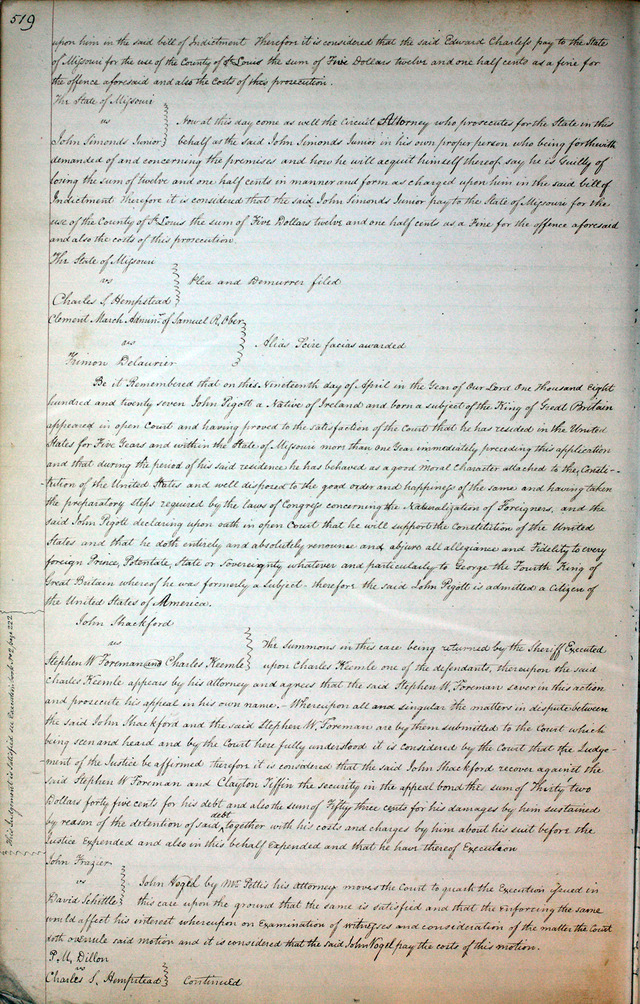 519
upon him in the said bill of Indictment Therefore it is considered that the said Edward Charless pay to the State
of Missouri for the use of the County of St Louis the sum of Five Dollars twelve and one half cents as a fine for
the offence aforesaid and also the Costs of this prosecution.
The State of Missouri
vs
Now at this day come as well the Circuit Attorney who prosecutes for the State in this
John Simonds Junior behalf as the said John Simonds Junior in his own proper person who being forthwith
demanded of and concerning the premises and how he will acquit himself thereof say he is Guilty of
losing the sum of twelve and one half cents in manner and form as charged upon him in the said bill of
Indictment Therefore it is considered that the said John Simonds Junior pay to the State of Missouri for the
use of the County of St Louis the sum of Five Dollars twelve and one half cents as a Fine for the offence aforesaid
and also the costs of this prosecution.
The State of Missouri
vs Plea and Demurrer filed
Charles S Hempstead
Clement March Adminr. of Samuel R. Ober
vs Alias Scire facias awarded
Timon Delaurier
Be it Remembered that on this Nineteenth day of April in the Year of Our Lord One thousand eight
hundred and twenty seven John Pigott a Native of Ireland and born a subject of the King of Great Britain
appeared in open Court and having proved to the satisfaction of the Court that he has resided in the United
States for Five Years and within the State of Missouri more than one Year immediately preceding this application
and that during the period of his said residence he has behaved as a good moral Character attached to the Consti-
-tution of the United States and well disposed to the good order and happiness of the same and having taken
the preparatory steps required by the laws of Congress concerning the Naturalization of Foreigners, and the
said John Pigott declaring upon oath in open Court that he will support the Constitution of the United
States and that he doth entirely and absolutely renounce and abjure all allegiance and Fidelity to every
foreign Prince, Potentate, State or Sovereignty whatever and particularly to George the Fourth King of
Great Britain whereof he was formerly a Subject - therefore the said John Pigott is admitted a Citizen of
the United States of America.
John Shackford
vs The Summons in this case being returned by the Sheriff Executed
Stephen W Foreman and Charles Keemle upon Charles Keemle one of the defendants, thereupon the said
Charles Keemle appears by his attorney and agrees that the said Stephen W. Foreman sever in this action
and prosecute his appeal in his own name. - Whereupon all and singular the matters in dispute between
the said John Shackford and the said Stephen W. Foreman are by them submitted to the Court which
being seen and heard and by the Court here fully understood it is considered by the Court that the Judge-
-ment of the Justice be affirmed therefore it is considered that the said John Shackford recover against the
said Stephen W Foreman and Clayton Tiffin the security in the appeal bond the sum of Thirty two
Dollars forty five cents for his debt and also the sum of Fifty three cents for his damages by him sustained
by reason of the detention of said debt together with his costs and charges by him about his suit before the
Justice Expended and also in this behalf Expended and that he have thereof Execution
This Judgement is Satisfied see Execution book No 2, page 222
John Frazier
vs John Vogel by Mr. Pettis his attorney moves the Court to quash the Execution issued in
David Schittle this case upon the ground that the same is satisfied and that the enforcing the same
would affect his interest whereupon on Examination of witnesses and consideration of the matter the Court
doth overrule said motion and it is considered that the said John Vogel pay the costs of this motion.
P. M. Dillon
vs
Charles S. Hempstead Continued